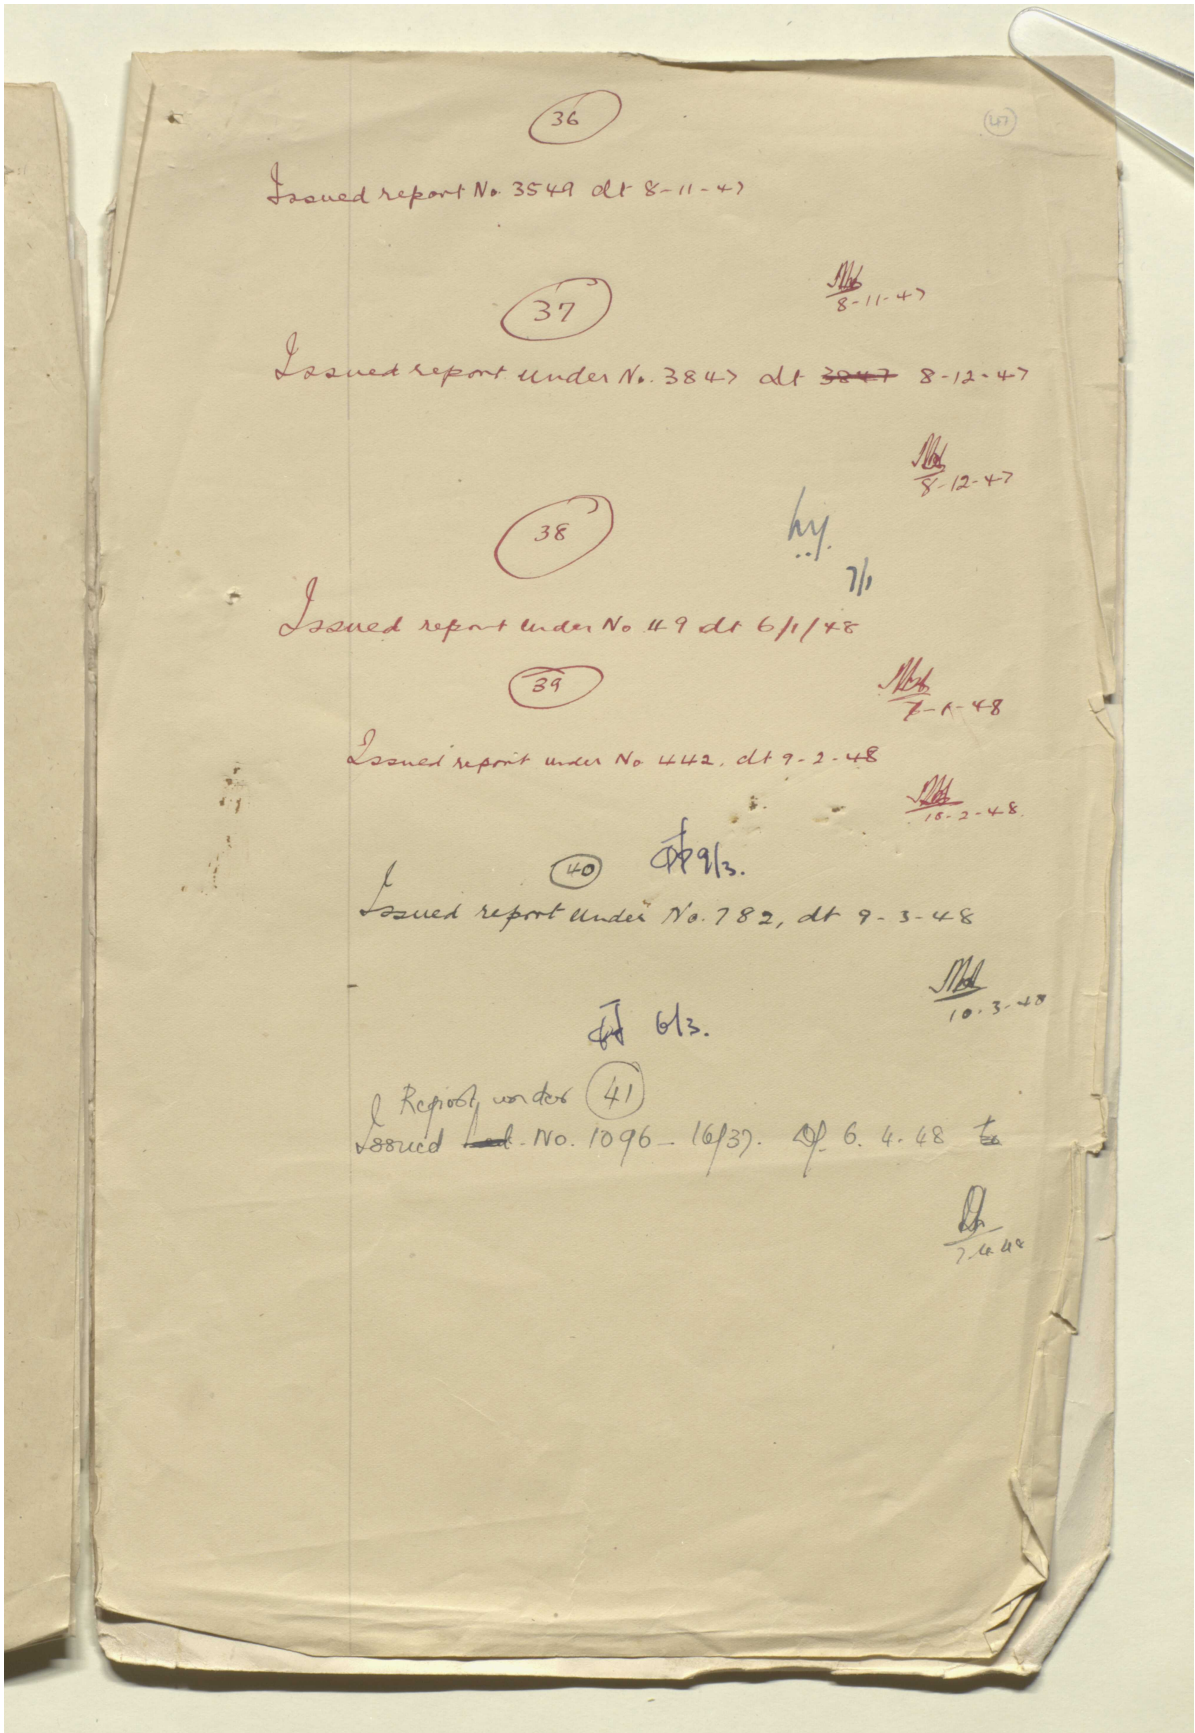 36
47
Issued report No. 3549 dt 8-11-47
8-11-47
37
Issued report under No. 3847 dt 3847 8-12-47
8-12-47
38
7/1
Issued report under No 49 dt 6/1/48
39
7-1-48
Issued report under No 442, dt 9-2-48
10-2-48.
40
9/3.
Issued report under No. 782, dt 9-3-48
10.3-48
6/3.
Report under 41
Issued No. 1096-16/37. Of 6.4.48
7.4.48